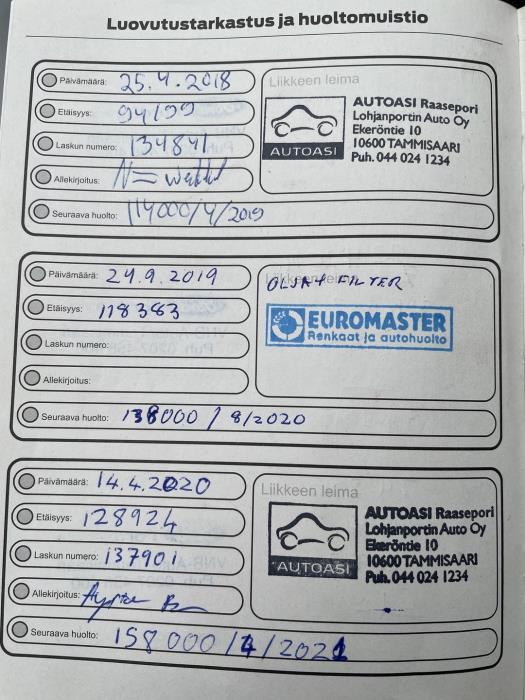 Luovutustarkastus ja huoltomuistio
Päivämäärä: 25.4.2018
Etäisyys: 94199
Laskun numero: 134841
Allekirjoitus:
Seuraava huolto: 114000/4/2019
Liikkeen leima
AUTOASI
AUTOASI Raasepori
Lohjanportin Auto Oy
Ekeröntie 10
10600 TAMMISAARI
Puh. 044 024 1234
Päivämäärä: 24.9.2019
Etäisyys: 118383
Laskun numero:
Allekirjoitus:
Seuraava huolto: 138000 / 8/2020
Liikkeen leima
OLJA+ FILTER
EUROMASTER
Renkaat ja autohuolto
Päivämäärä: 14.4.2020
Etäisyys: 128924
Laskun numero: 137901
Allekirjoitus:
Seuraava huolto: 158000/4/2021
Liikkeen leima
AUTOASI
AUTOASI Raasepori
Lohjanportin Auto Oy
Ekeröntie 10
10600 TAMMISAARI
Puh. 044 024 1234